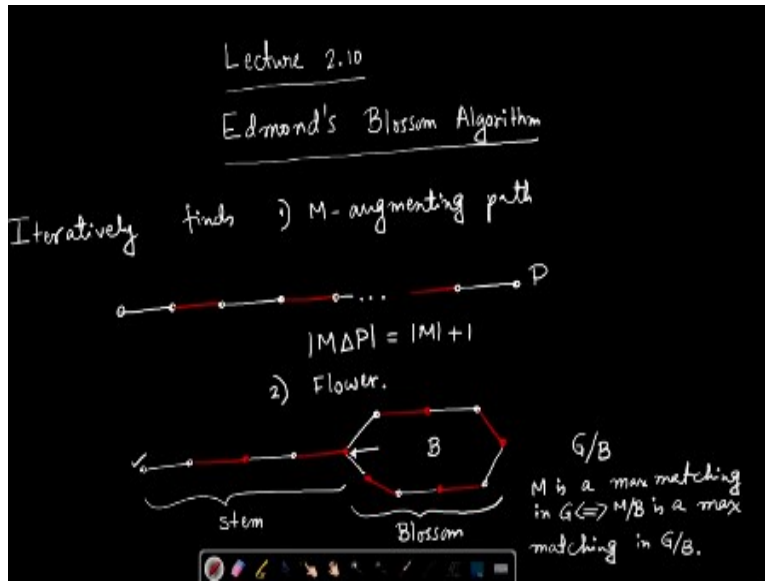 Lecture 2.10
Edmond's Blossom Algorithm
Iteratively finds 1) M-augmenting path
P
|MΔP| = |M| + 1
2) Flower.
B
stem
Blossom
G/B
M is a max matching
in G <=> M/B is a max
matching in G/B.